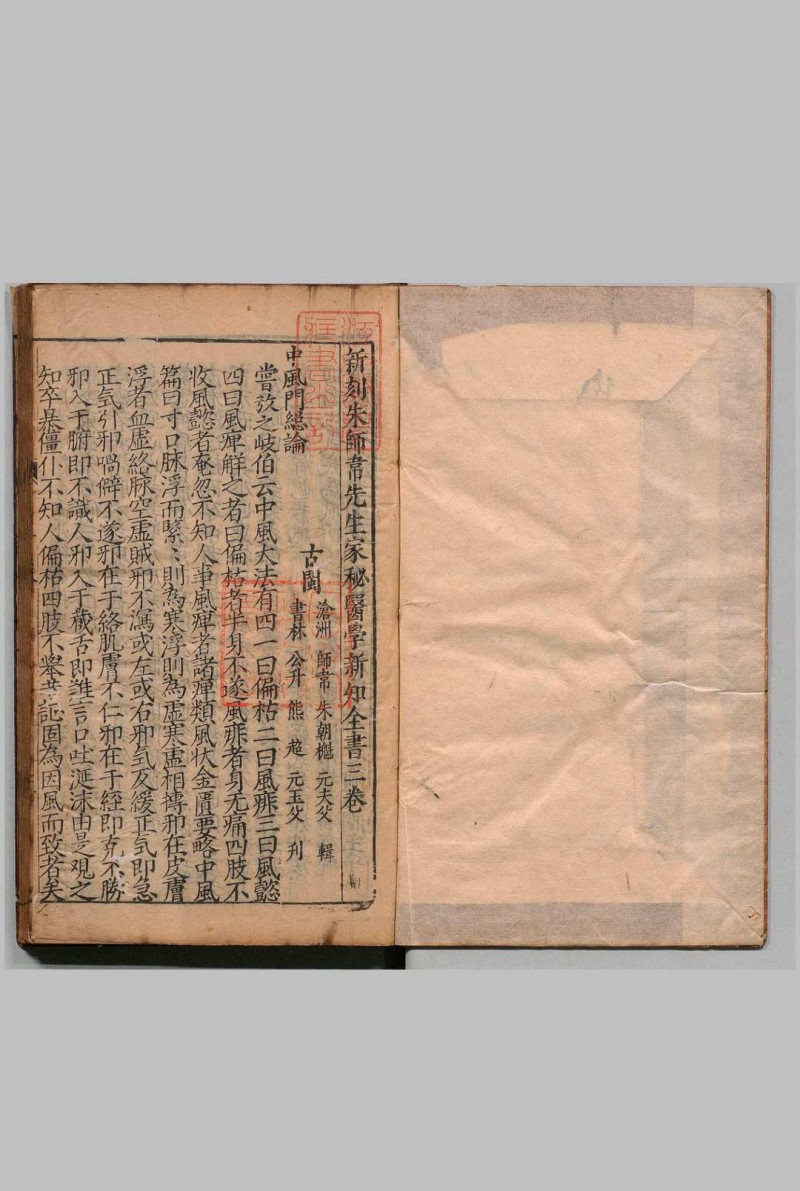 新刻朱師常先生家秘醫學新知全書三卷
古閩
滄洲 師常 朱朝櫆 元夫父 輯
書林 公升 熊 趂 元玉父 刊
中風門緫論
嘗攷之岐伯云中風大法有四一曰偏枯二曰風痱三曰風懿
四曰風痺觧之者曰偏枯者半身不遂風痱者身无痛四肢不
收風懿者奄忽不知人事風痺者諸痺類風状金匱要略中風
篇曰寸口脉浮而緊〻則為寒浮則為虚寒虚相摶邪在皮膚
浮者血虚絡脉空虚賊邪不瀉或左或右邪気反緩正気即急
正気引邪喎僻不遂邪在于絡肌膚不仁邪在于経即克不勝
邪入于腑即不識人邪入于臓舌即難言口吐涎沫由是觀之
知卒暴僵仆不知人偏枯四肢不舉䓁證固為因風而致者矣